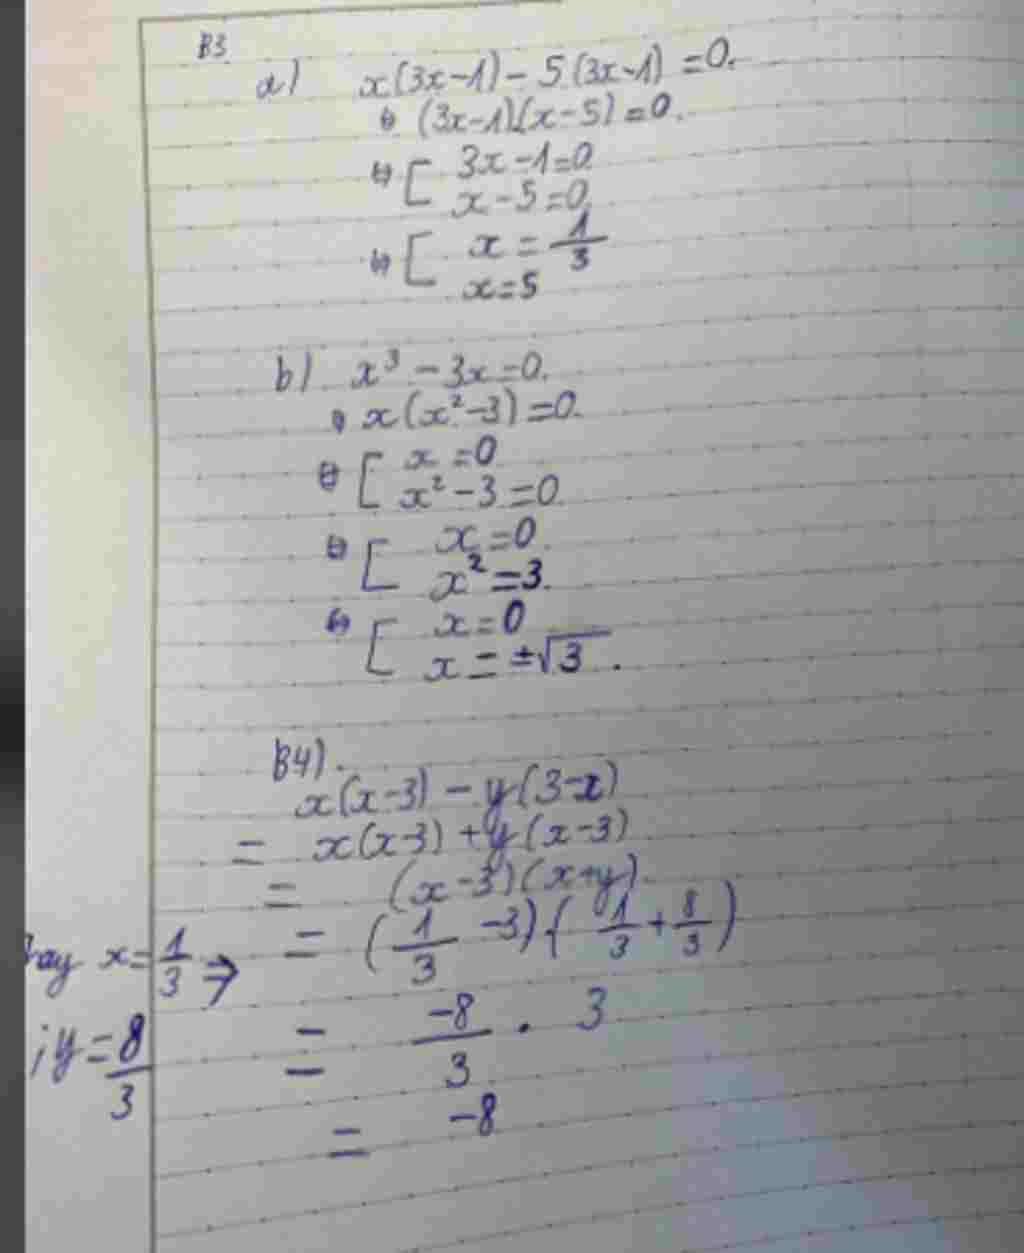 B3
a) x(3x-1) - 5(3x-1) = 0.
⇔ (3x-1)(x-5) = 0.
⇔ [ 3x-1=0
x-5=0
⇔ [ x = 1/3
x=5
b) x³ - 3x = 0.
⇔ x(x²-3) = 0.
⇔ [ x = 0
x² - 3 = 0
⇔ [ x = 0.
x² = 3.
⇔ [ x = 0
x = ±√3.
B4).
x(x-3) - y(3-x)
= x(x-3) + y(x-3)
= (x-3)(x+y)
x = 1/3 ⇒ = (1/3 - 3)(1/3 + 8/3)
; y = 8/3 = -8/3 . 3
= -8